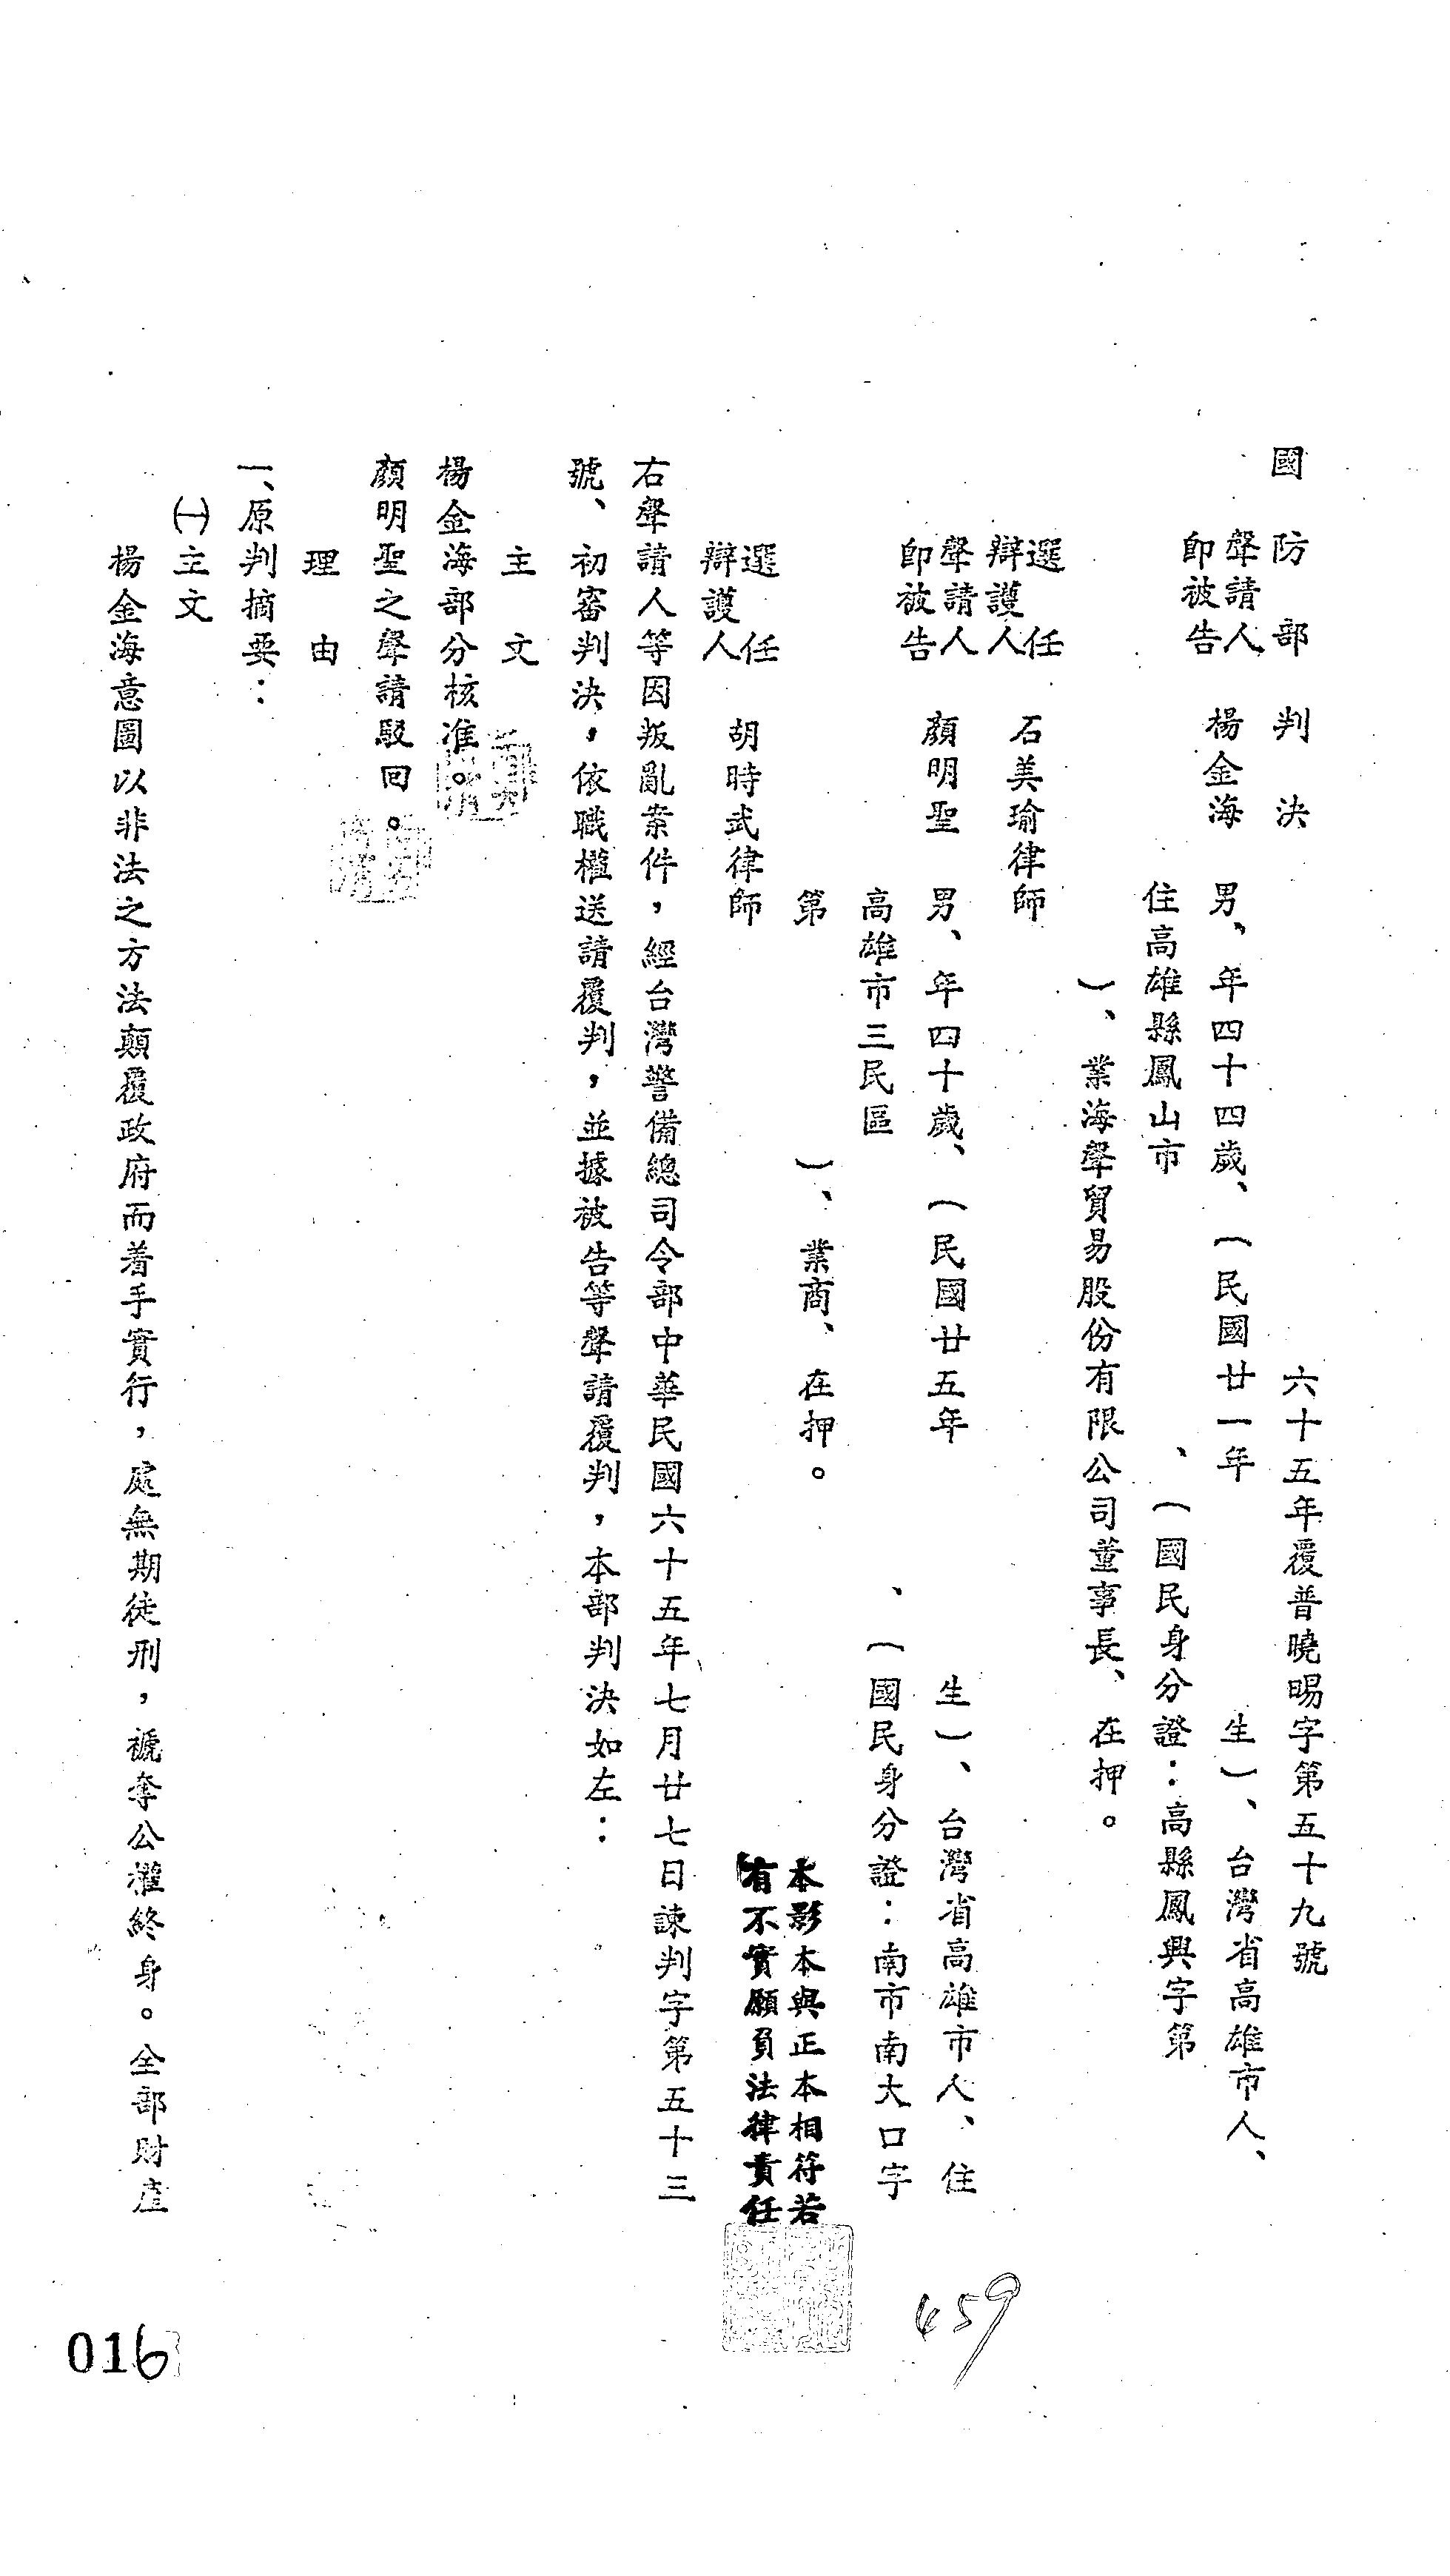 國防部判決　六十五年覆普曉暘字第五十九號
聲請人
即被告　楊金海　男、年四十四歲、(民國廿一年　生)、台灣省高雄市人、
住高雄縣鳳山市　、(國民身分證：高縣鳳興字第
)、業海聲貿易股份有限公司董事長、在押。
選任
辯護人　石美瑜律師
聲請人
即被告　顏明聖　男、年四十歲、(民國廿五年　生)、台灣省高雄市人、住
高雄市三民區　、(國民身分證：南市南大口字
第　)、業商、在押。
選任
辯護人　胡時武律師
右聲請人等因叛亂案件，經台灣警備總司令部中華民國六十五年七月廿七日諫判字第五十三
號、初審判決，依職權送請覆判，並據被告等聲請覆判，本部判決如左：
主文
楊金海部分核准。
顏明聖之聲請駁回。
理由
一、原判摘要：
㈠主文
楊金海意圖以非法之方法顛覆政府而着手實行，處無期徒刑，褫奪公權終身。全部財產
本影本與正本相符若
有不實願負法律責任
459
016